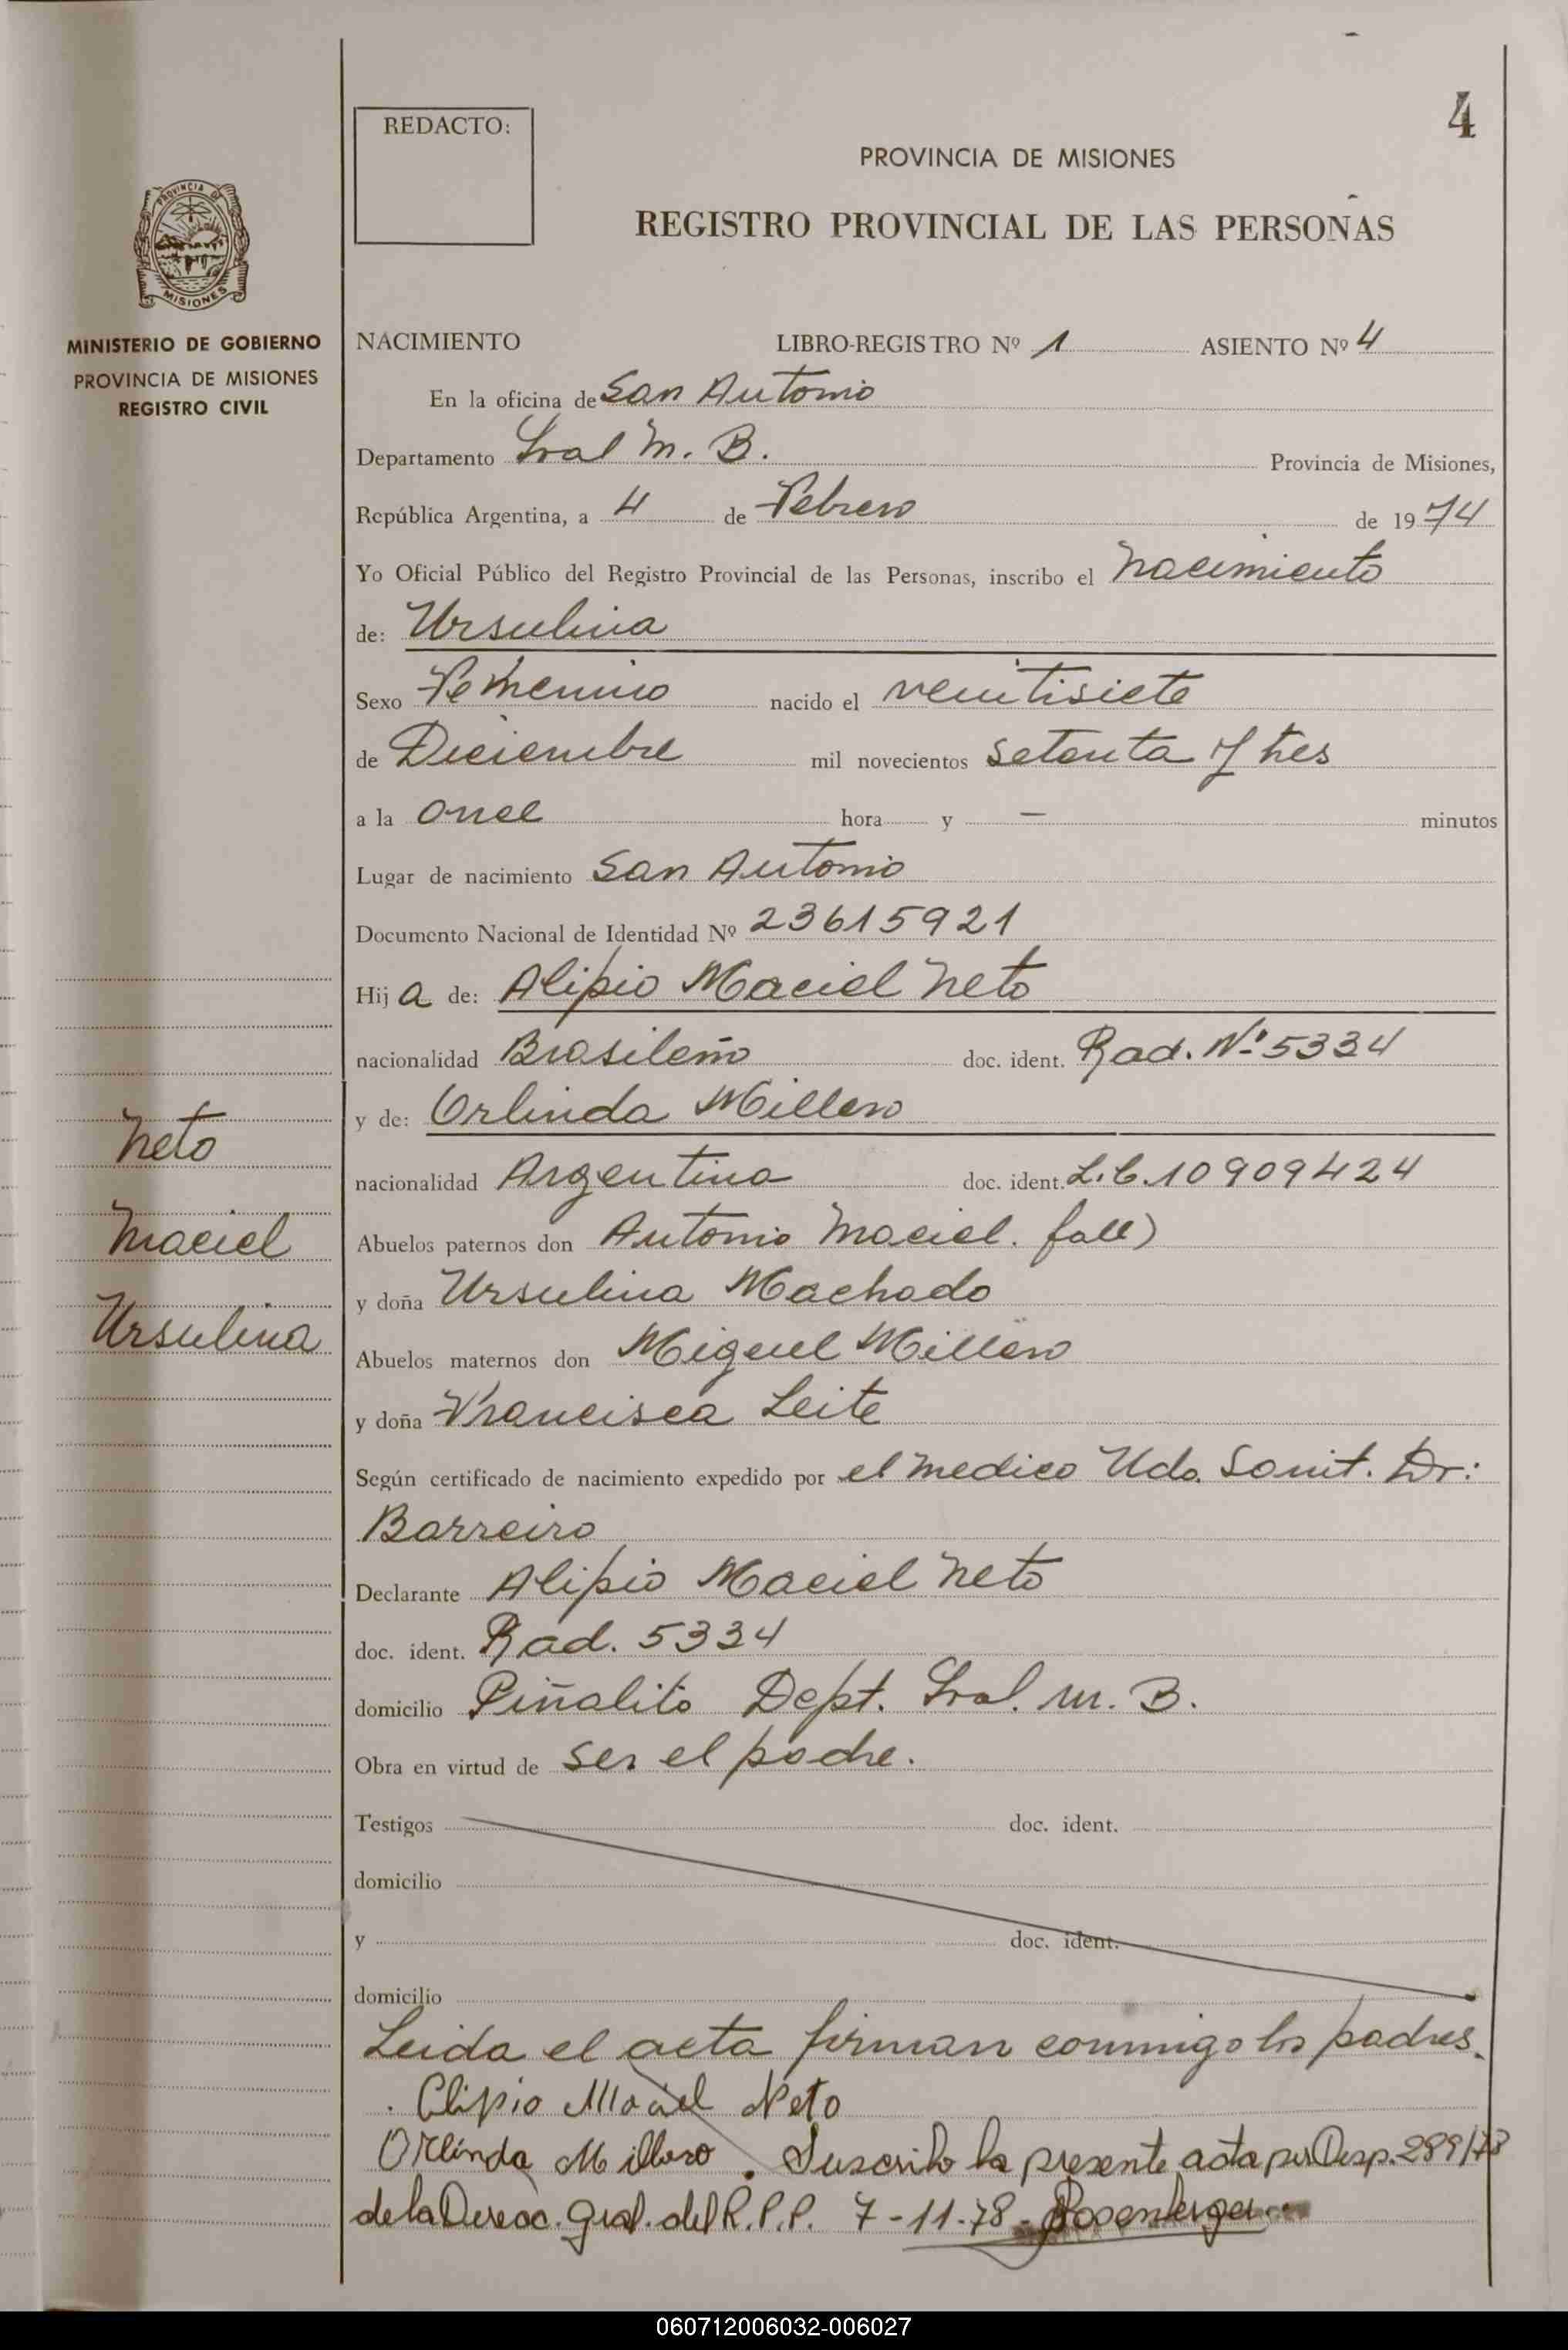 4
REDACTO:
PROVINCIA DE MISIONES
REGISTRO PROVINCIAL DE LAS PERSONAS
PROVINCIA DE
MISIONES
MINISTERIO DE GOBIERNO
PROVINCIA DE MISIONES
REGISTRO CIVIL
NACIMIENTO LIBRO-REGISTRO Nº 1 ASIENTO Nº 4
En la oficina de San Antonio
Departamento Gral M. B. Provincia de Misiones,
República Argentina, a 4 de Febrero de 1974
Yo Oficial Público del Registro Provincial de las Personas, inscribo el nacimiento
de: Ursulina
Sexo Femenino nacido el veintisiete
de Diciembre mil novecientos setenta y tres
a la once hora y — minutos
Lugar de nacimiento San Antonio
Documento Nacional de Identidad Nº 23615921
Hija de: Alipio Maciel Neto
nacionalidad Brasileño doc. ident. Rad. Nº 5334
y de: Orlinda Millero
nacionalidad Argentina doc. ident. L.C. 10909424
Abuelos paternos don Antonio Maciel. fall)
y doña Ursulina Machado
Abuelos maternos don Miguel Millero
y doña Francisca Leite
Según certificado de nacimiento expedido por el medico Uda. Sanit. Dr:
Barreiro
Declarante Alipio Maciel Neto
doc. ident. Rad. 5334
domicilio Piñalito Dept. Gral. M. B.
Obra en virtud de ser el padre.
Testigos doc. ident.
domicilio
y doc. ident.
domicilio
Leida el acta firman conmigo los padres.
Alipio Maciel Neto
Orlinda Millero. Suscribo la presente acta por Disp. 289/73
de la Direcc. Gral. del R.P.P. 7-11-78-
Neto
Maciel
Ursulina
060712006032-006027